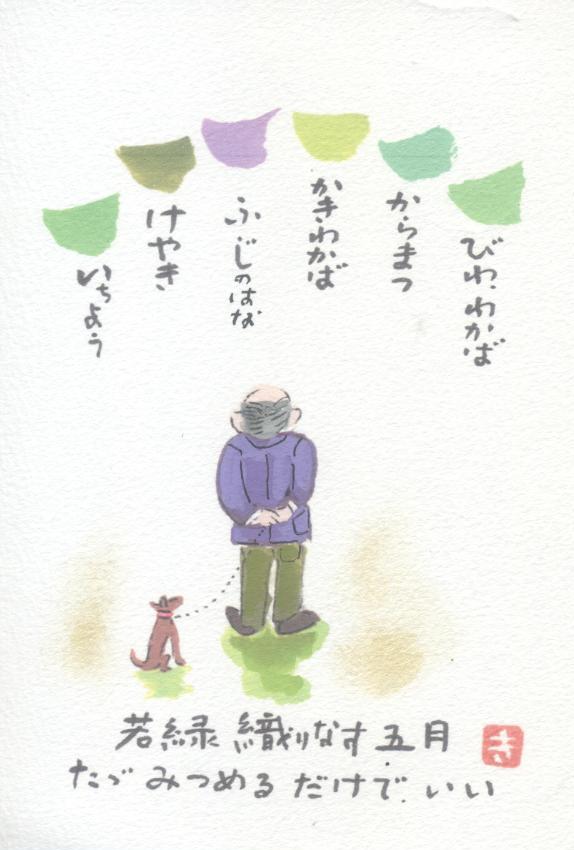 びわわかば
からまつ
かきわかば
ふじのはな
けやき
いちよう
若緑 織りなす 五月
たゞ みつめる だけで いい
き